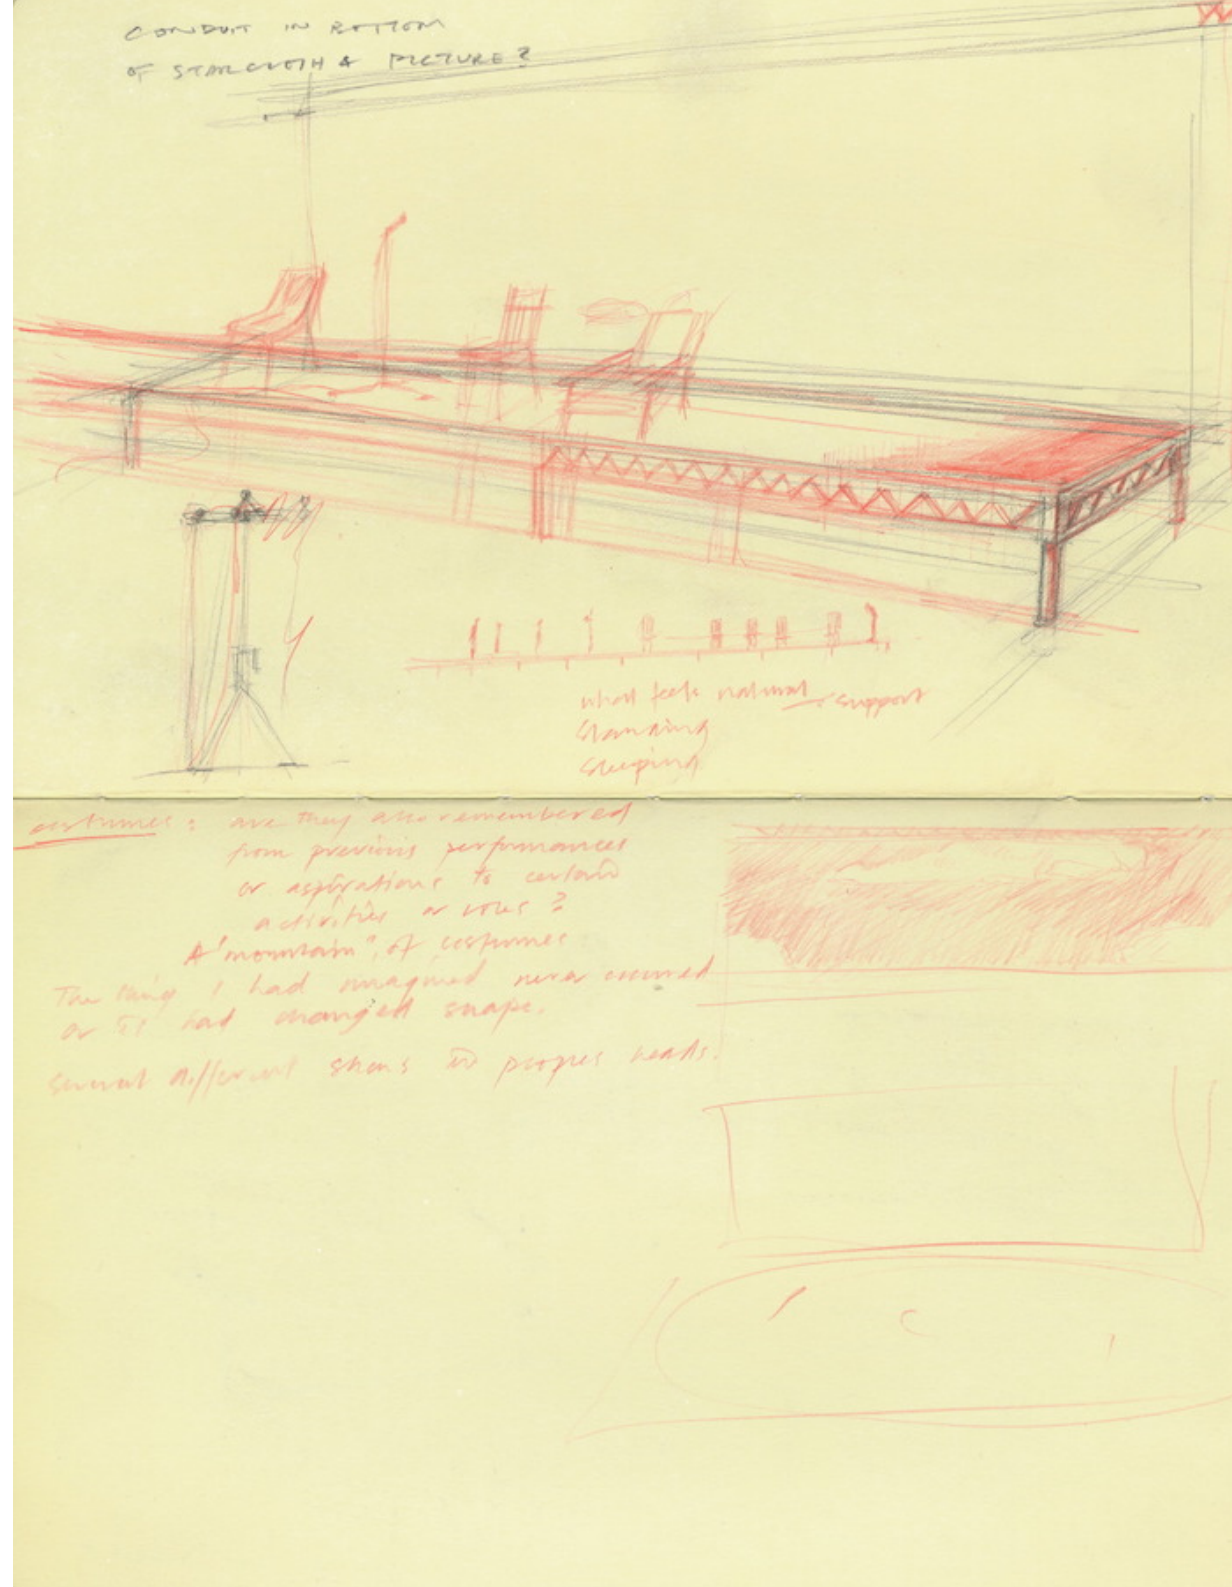 CONDUIT IN BOTTOM
OF STARCLOTH & PICTURE?
what feels natural → support
standing
sleeping
costumes: are they also remembered
from previous performances
or aspirations to certain
activities or roles?
A "mountain" of costumes
The thing I had imagined never occurred
or it had changed shape.
several different shows in peoples heads.